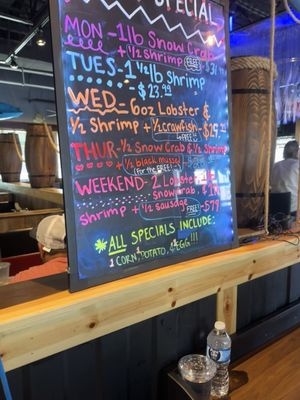 SPECIAL
MON - 1lb Snow Crab
+ ½ shrimp FREE
TUES - 1½lb Shrimp
- $23.99
WED - 6oz Lobster &
½ Shrimp + ½ crawfish - $29
FREE!
THUR - ½ Snow Crab & ½ Shrimp
+ ½ black mussel
(for the FREE!)
WEEKEND - 2 Lobster
snow crab & 1lb
shrimp + ½ sausage FREE! - $79
ALL SPECIALS INCLUDE:
1 CORN, POTATO, & EGG!!!